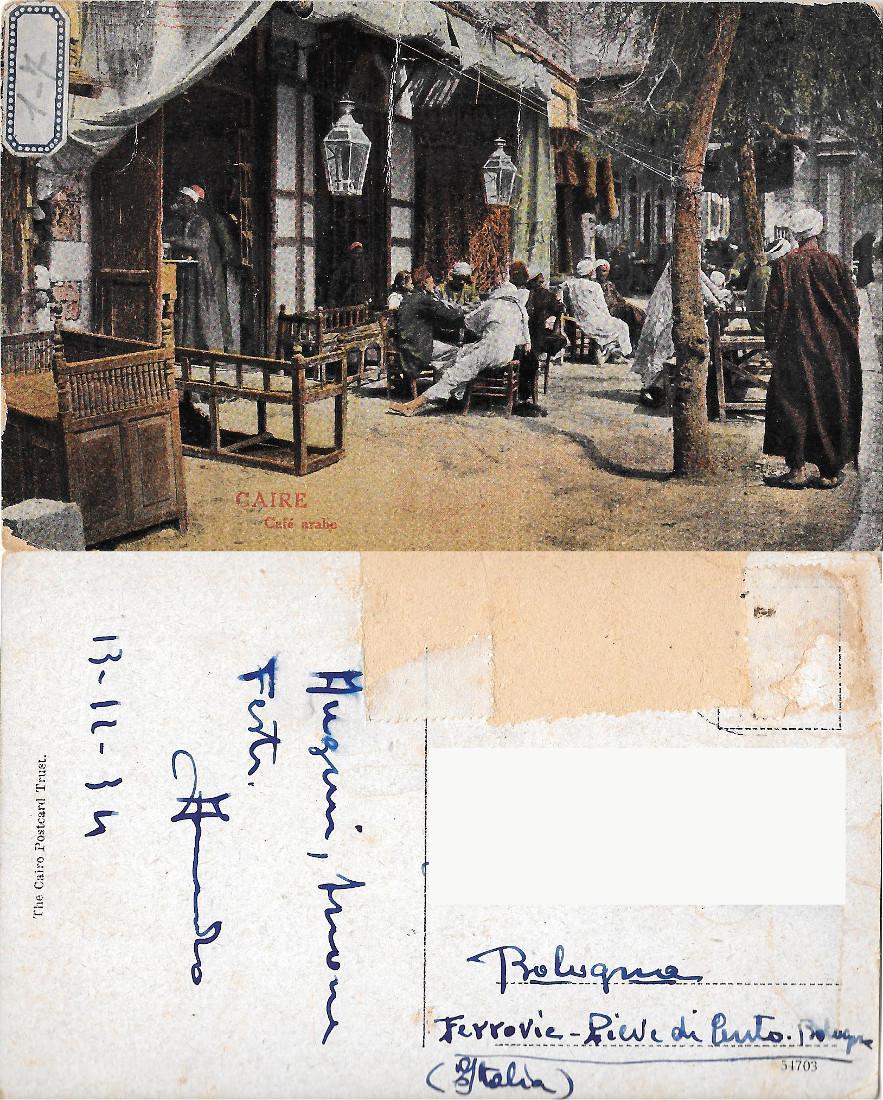 1-K
CAIRE
Café arabe
Auguri, buone
Feste.
Armando
13-12-34
The Cairo Postcard Trust.
Bologna
Ferrovia - Pieve di Cento. Bologna
(Italia)
54703